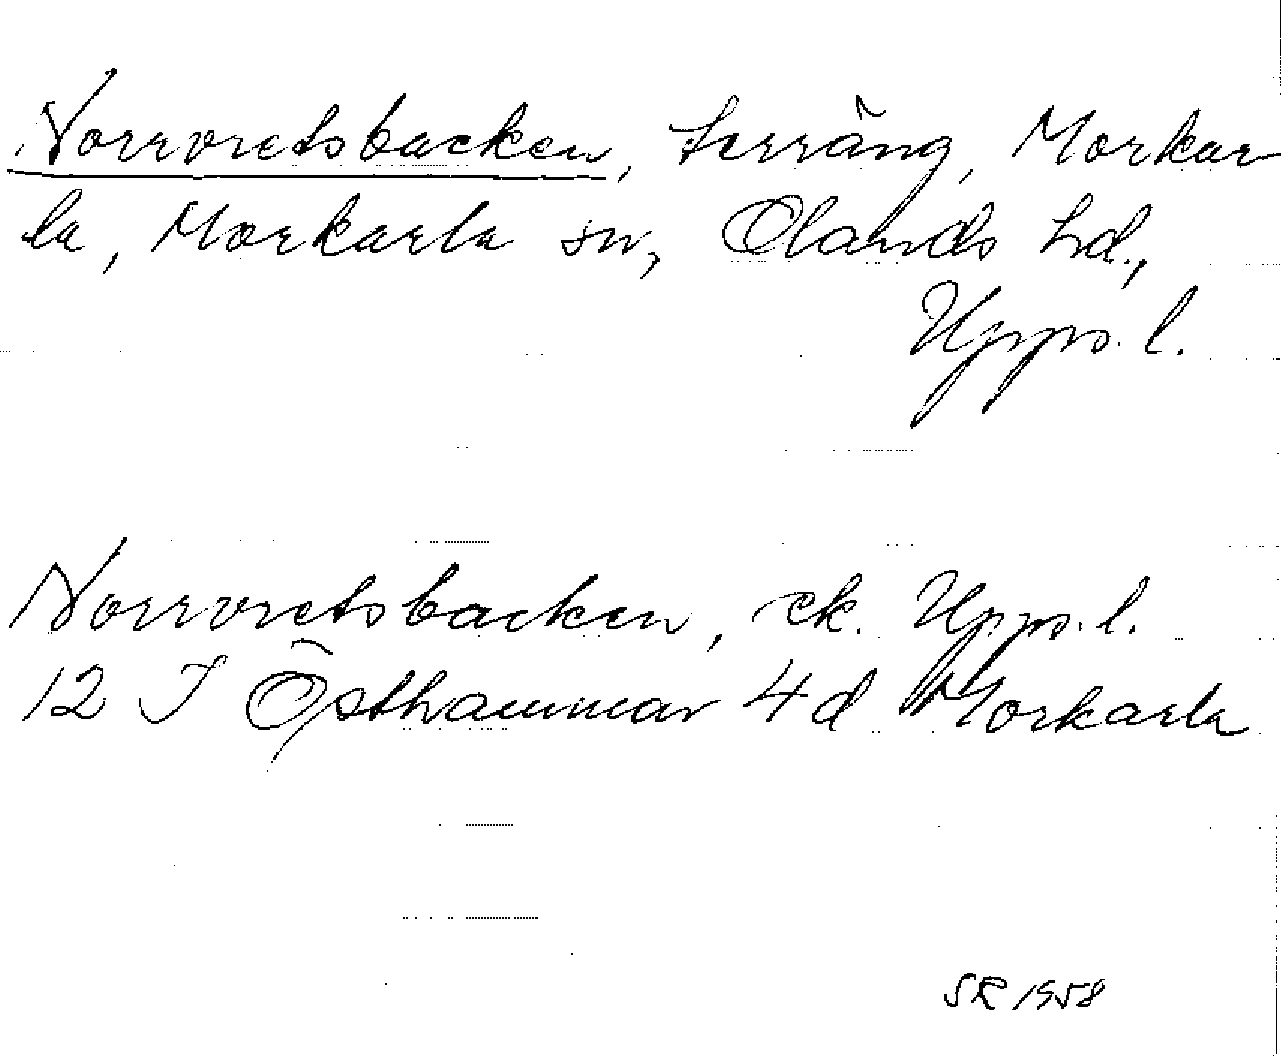 Norrvretsbacken, terräng, Morkar
la, Morkarla sn, Olands hd.,
Upps. l.
Norrvretsbacken, ek. Upps. l.
12 I Östhammar 4d Morkarla
SR 1958